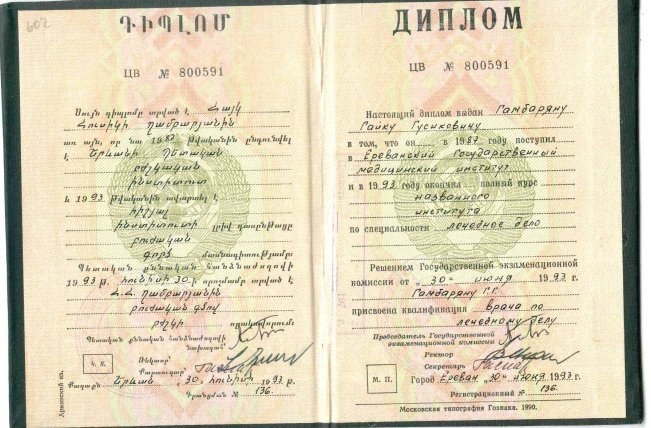 602
ԴԻՊԼՈՄ
ЦВ № 800591
Սույն դիպլոմը տրված է Հայկ
Հուսիկի Ղամբարյանին
առ այն, որ նա 1987 թվականին ընդունվել
է Երևանի Պետական
բժշկական
ինստիտուտ
և 1993 թվականին ավարտել է
նույն
ինստիտուտի լրիվ դասընթացը
բուժական
գործ մասնագիտությամբ:
Պետական քննական հանձնաժողովի
1993 թ. հունիսի 30-ի որոշմամբ տրված է
Հ.Հ. Ղամբարյանին
բուժական գծով
բժշկի որակավորում:
Պետական քննական հանձնաժողովի
նախագահ
Կ. Տ.
Ռեկտոր
Քարտուղար
Քաղաք Երևան „30" հունիսի 1993 թ.
Գրանցման № 136
Армянский яз.
ДИПЛОМ
ЦВ № 800591
Настоящий диплом выдан Гамбаряну
Гайку Гусиковичу
в том, что он в 1987 году поступил
в Ереванский Государственный
медицинский институт
и в 1993 году окончил полный курс
названного
института
по специальности лечебное дело
Решением Государственной экзаменационной
комиссии от „30" июня 1993 г.
Гамбаряну Г.Г.
присвоена квалификация врача по
лечебному делу
Председатель Государственной
экзаменационной комиссии
Ректор
Секретарь
М. П.
Город Ереван „30" июня 1993 г.
Регистрационный № 136.
Московская типография Гознака. 1990.